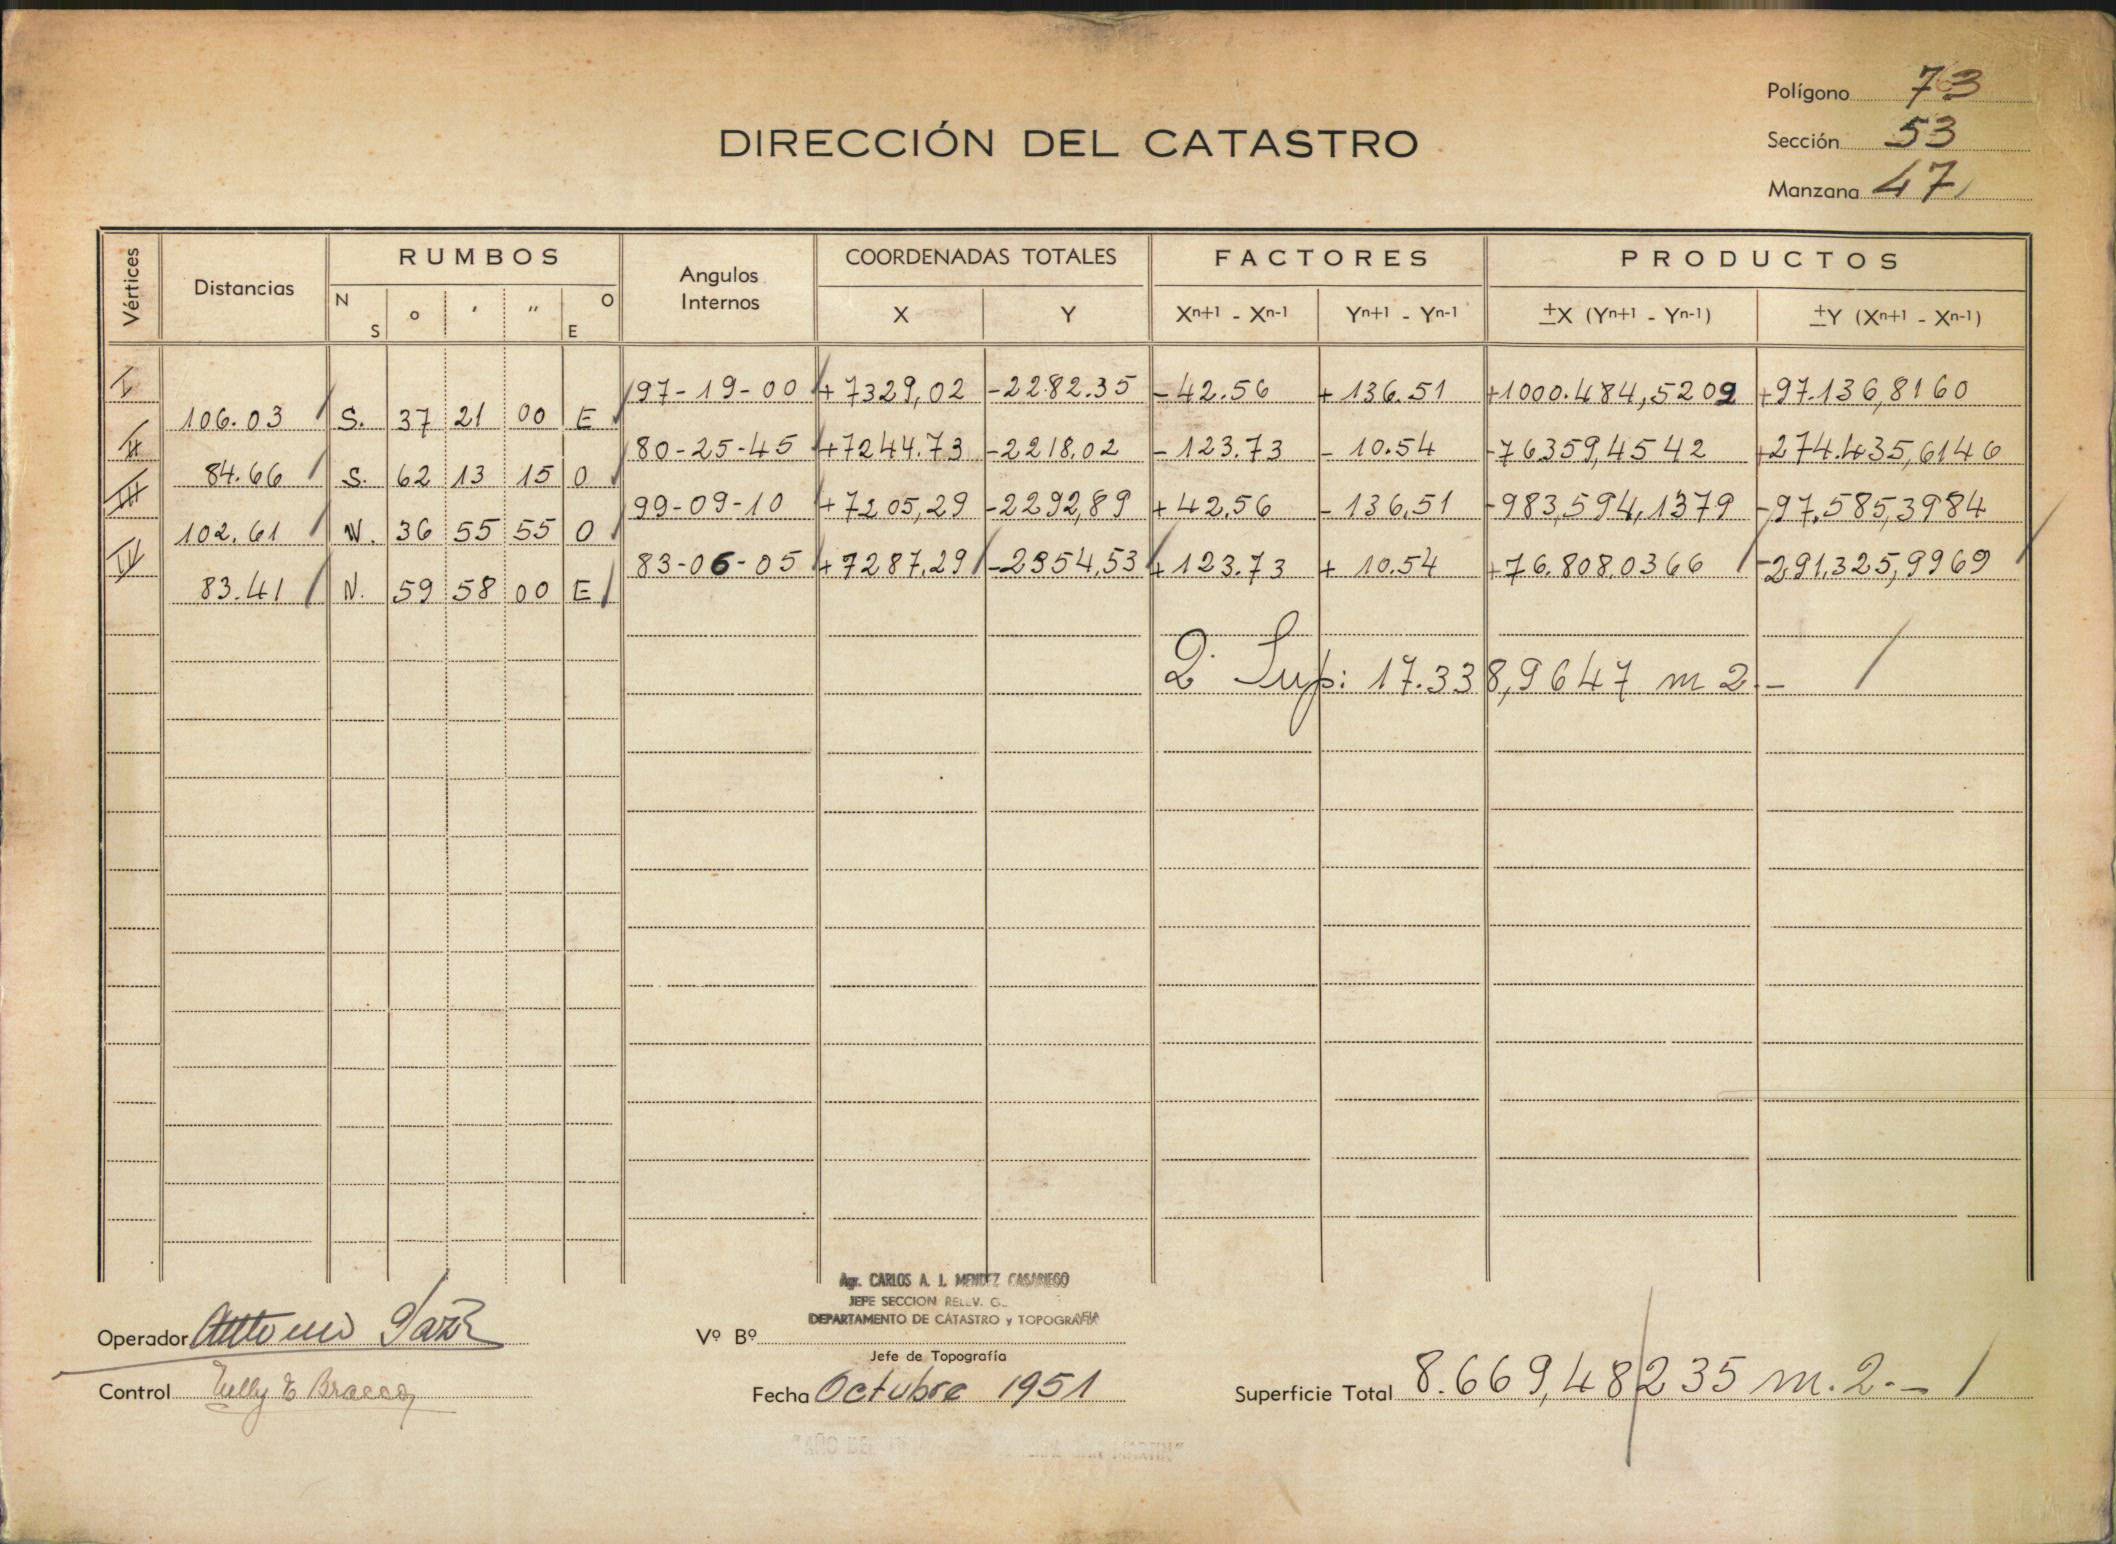 Polígono 73
DIRECCIÓN DEL CATASTRO
Sección 53
Manzana 47
Vértices Distancias RUMBOS Angulos Internos COORDENADAS TOTALES FACTORES PRODUCTOS
N S o ' '' O E X Y Xn+1 - Xn-1 Yn+1 - Yn-1 ±X (Yn+1 - Yn-1) ±Y (Xn+1 - Xn-1)
I 97-19-00 +7329,02 -2282.35 -42.56 +136.51 +1000.484,5209 +97.136,8160
106.03 S. 37 21 00 E
II 80-25-45 +7244.73 -2218,02 -123.73 -10.54 -76359,4542 +274.435,6146
84.66 S. 62 13 15 O
III 99-09-10 +7205,29 -2292,89 +42,56 -136,51 -983,594,1379 -97.585,3984
102.61 N. 36 55 55 O
IV 83-06-05 +7287,29 -2354,53 +123.73 +10.54 +76.808.0366 -291.325,9969
83.41 N. 59 58 00 E
2 Sup: 17.338,9647 m 2.-
Agr. CARLOS A. J. MENDEZ CASARIEGO
JEFE SECCION RELEV. G.
DEPARTAMENTO DE CATASTRO y TOPOGRAFIA
Operador Antonio
Vº Bº
Jefe de Topografía
Control Nelly E Bracco
Fecha Octubre 1951
Superficie Total 8.669,48235 m.2.-
"AÑO DEL